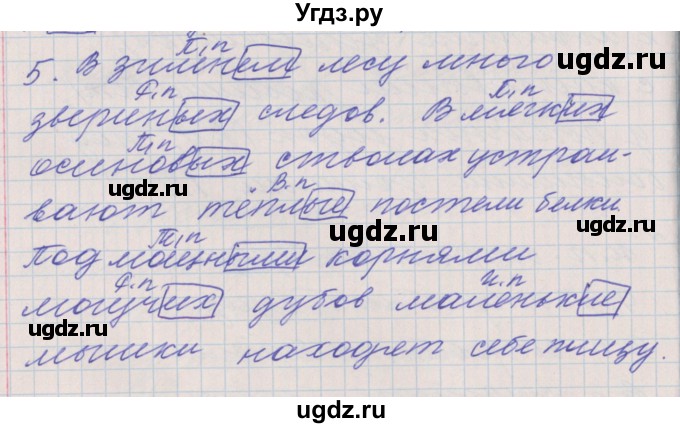 Угдз.ру
П.п
5. В зимнем лесу много
Р.п П.п
звериных следов. В мягких
П.п
осиновых стволах устраи-
В.п
вают тёплые постели белки
Т.п
Под мощными корнями
Р.п И.п
могучих дубов маленькие
мышки находят себе пищу.
ugdz.ru ugdz.ru
ugdz.ru
ugdz.ru
ugdz.ru
ugdz.ru
ugdz.ru ugdz.ru